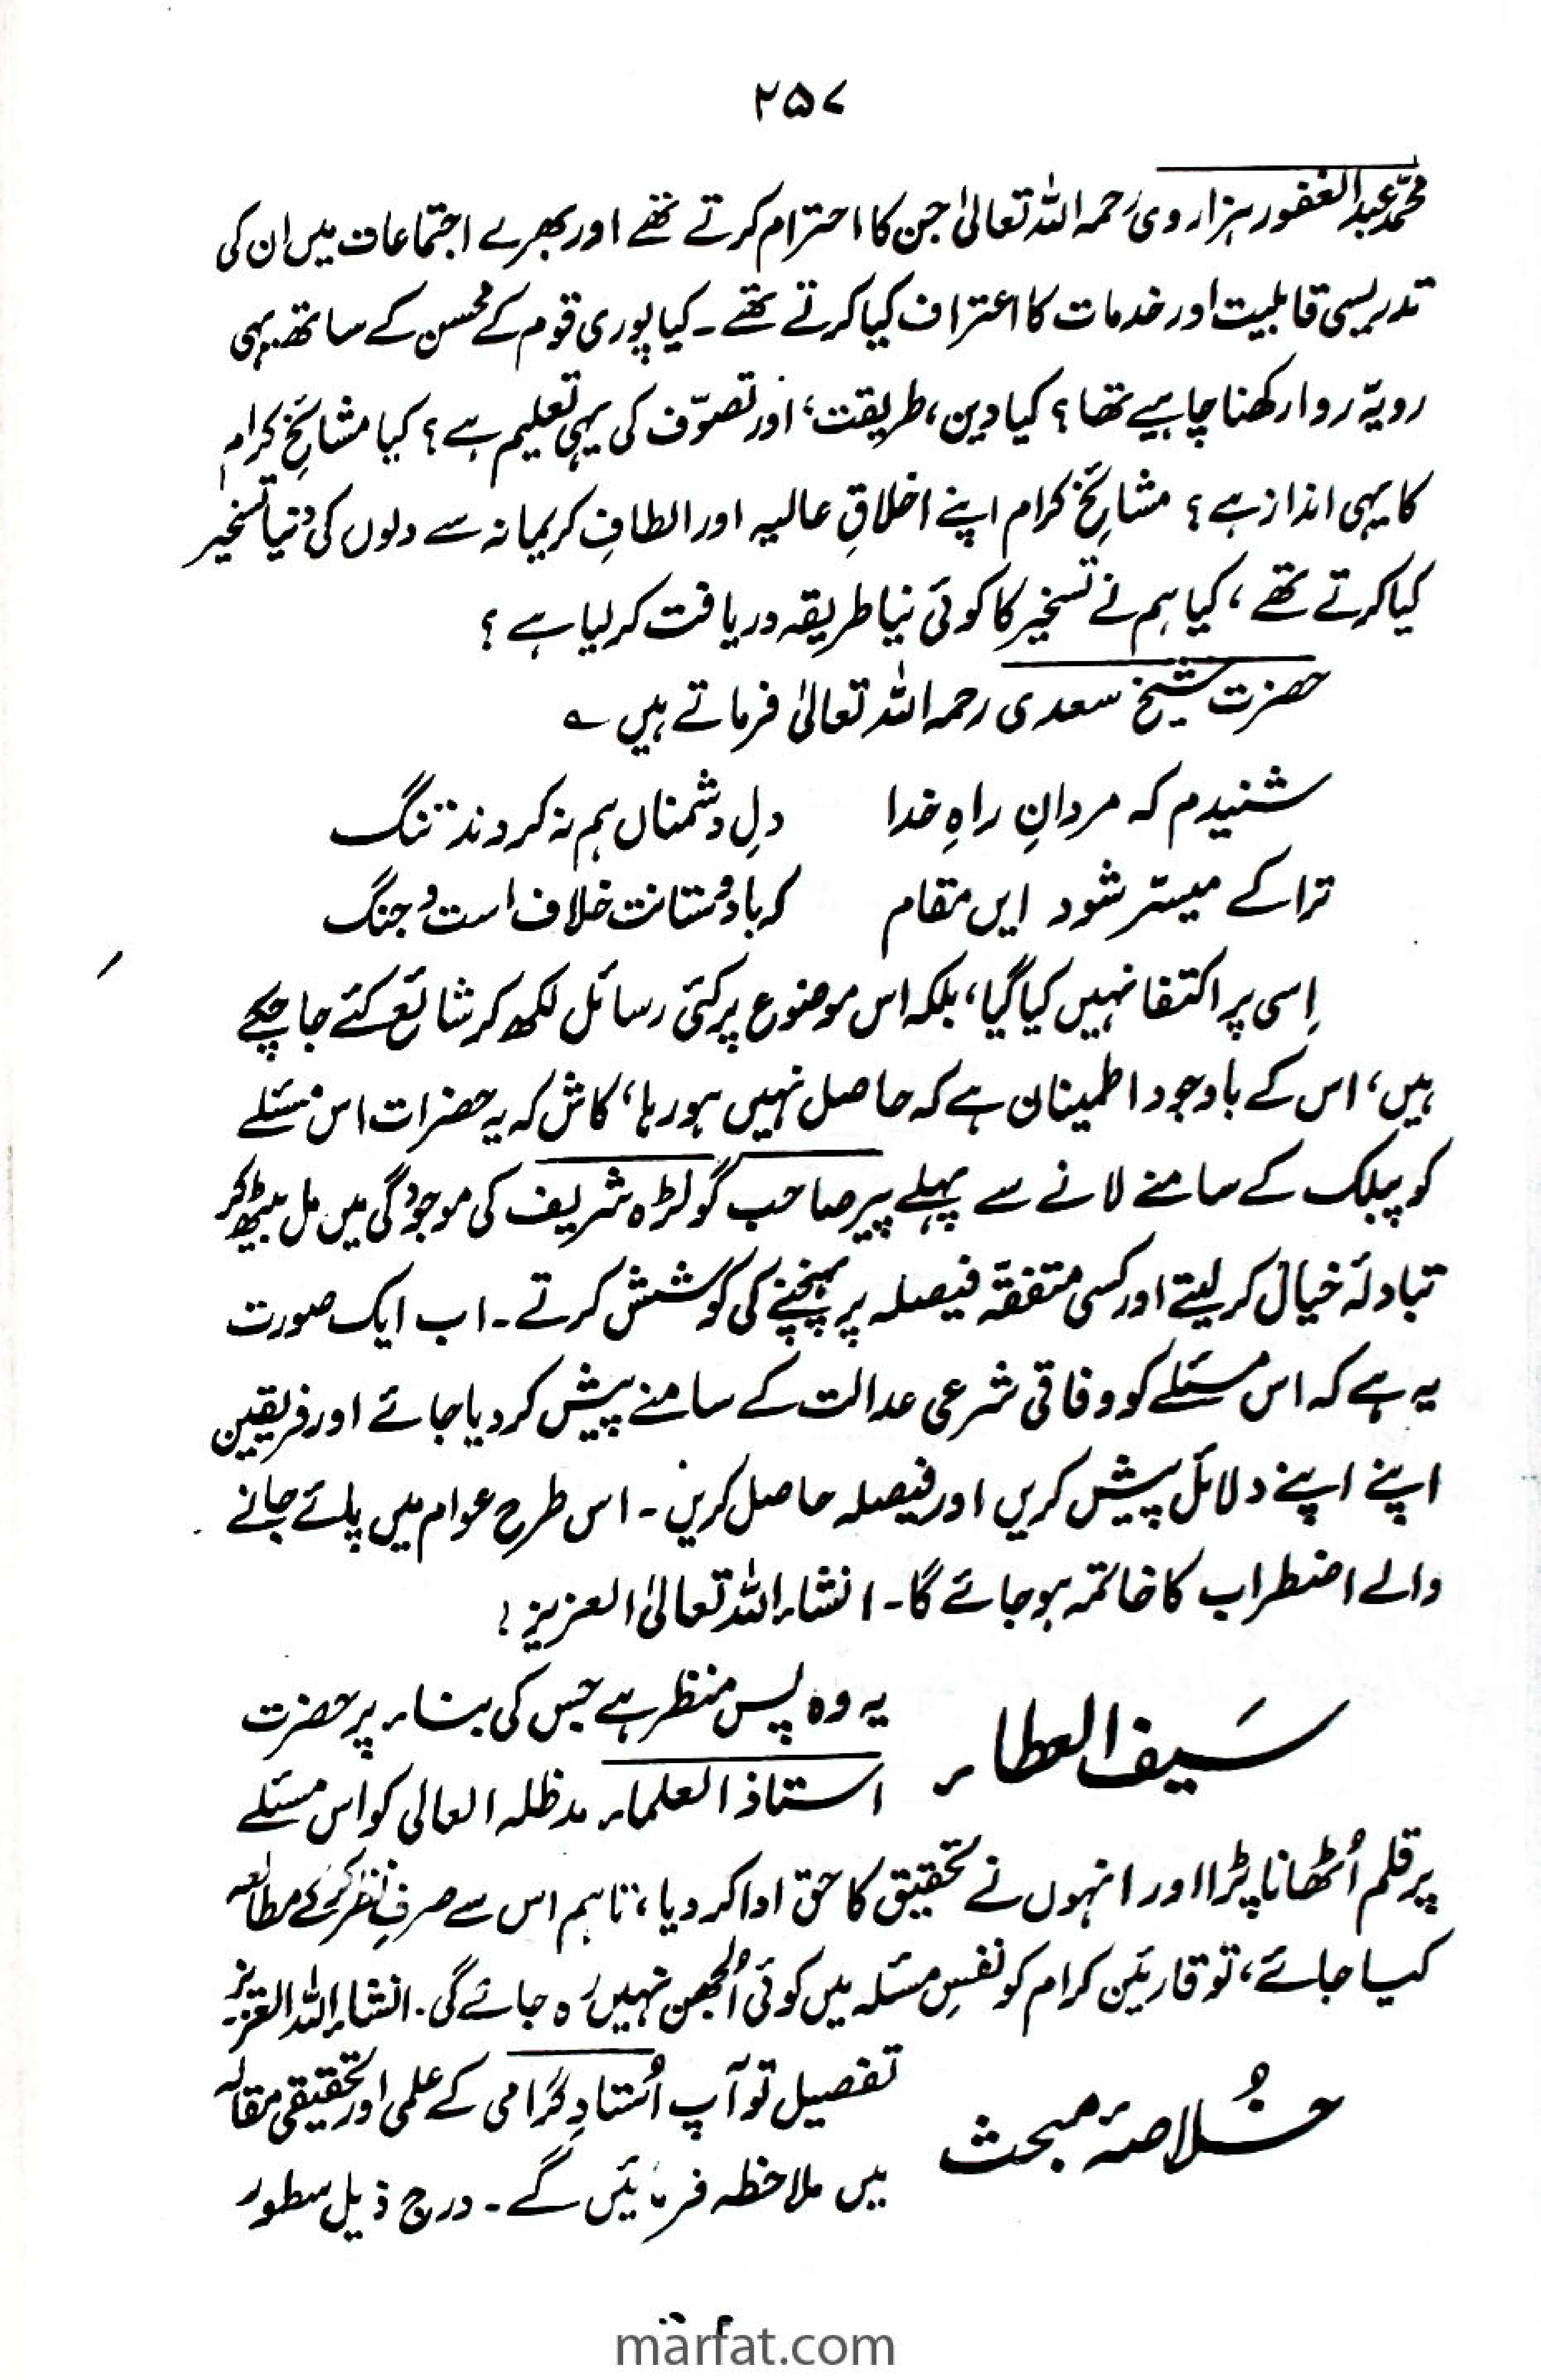 ۲۵۷
محمّد عبدالغفور ہزاروی رحمہ اللہ تعالیٰ جن کا احترام کرتے تھے اور بھرے اجتماعات میں ان کی
تدریسی قابلیت اور خدمات کا اعتراف کیا کرتے تھے۔ کیا پوری قوم کے محسن کے ساتھ یہی
رویہّ روا رکھنا چاہیے تھا؟ کیا دین، طریقت، اور تصوّف کی یہی تعلیم ہے؟ کیا مشائخِ کرام
کا یہی انداز ہے؟ مشائخِ کرام اپنے اخلاقِ عالیہ اور الطافِ کریمانہ سے دلوں کی دُنیا تسخیر
کیا کرتے تھے، کیا ہم نے تسخیر کا کوئی نیا طریقہ دریافت کر لیا ہے؟
حضرت شیخ سعدی رحمہ اللہ تعالیٰ فرماتے ہیں ؎
شنیدم کہ مردانِ راہِ خدا دلِ دشمناں ہم نہ کردند تنگ
ترا کے میسّر شود ایں مقام کہ بادوستانت خلاف است و جنگ
اِسی پر اکتفا نہیں کیا گیا، بلکہ اس موضوع پر کئی رسائل لکھ کر شائع کئے جا چکے
ہیں، اس کے باوجود اطمینان ہے کہ حاصل نہیں ہو رہا، کاش کہ یہ حضرات اس مسئلے
کو پبلک کے سامنے لانے سے پہلے پیر صاحب گولڑہ شریف کی موجودگی میں مل بیٹھ کر
تبادلۂ خیال کر لیتے اور کسی متفقہّ فیصلہ پر پہنچنے کی کوشش کرتے۔ اب ایک صورت
یہ ہے کہ اس مسئلے کو وفاقی شرعی عدالت کے سامنے پیش کر دیا جائے اور فریقین
اپنے اپنے دلائل پیش کریں اور فیصلہ حاصل کریں۔ اس طرح عوام میں پائے جانے
والے اضطراب کا خاتمہ ہو جائے گا۔ انشاء اللہ تعالیٰ العزیز!
سَیف العطاء یہ وہ پس منظر ہے جس کی بناء پر حضرت
استاذ العلماء مدظلہ العالی کو اس مسئلے
پر قلم اُٹھانا پڑا اور انہوں نے تحقیق کا حق ادا کر دیا، تاہم اس سے صرفِ نظر کرکے مطالعہ
کیا جائے، تو قارئین کرام کو نفسِ مسئلہ میں کوئی اُلجھن نہیں رہ جائے گی۔ انشاء اللہ العزیز
خُلاصۂ مبحث تفصیل تو آپ اُستادِ گرامی کے علمی اور تحقیقی مقالہ
میں ملاحظہ فرمائیں گے۔ درج ذیل سطور
marfat.com